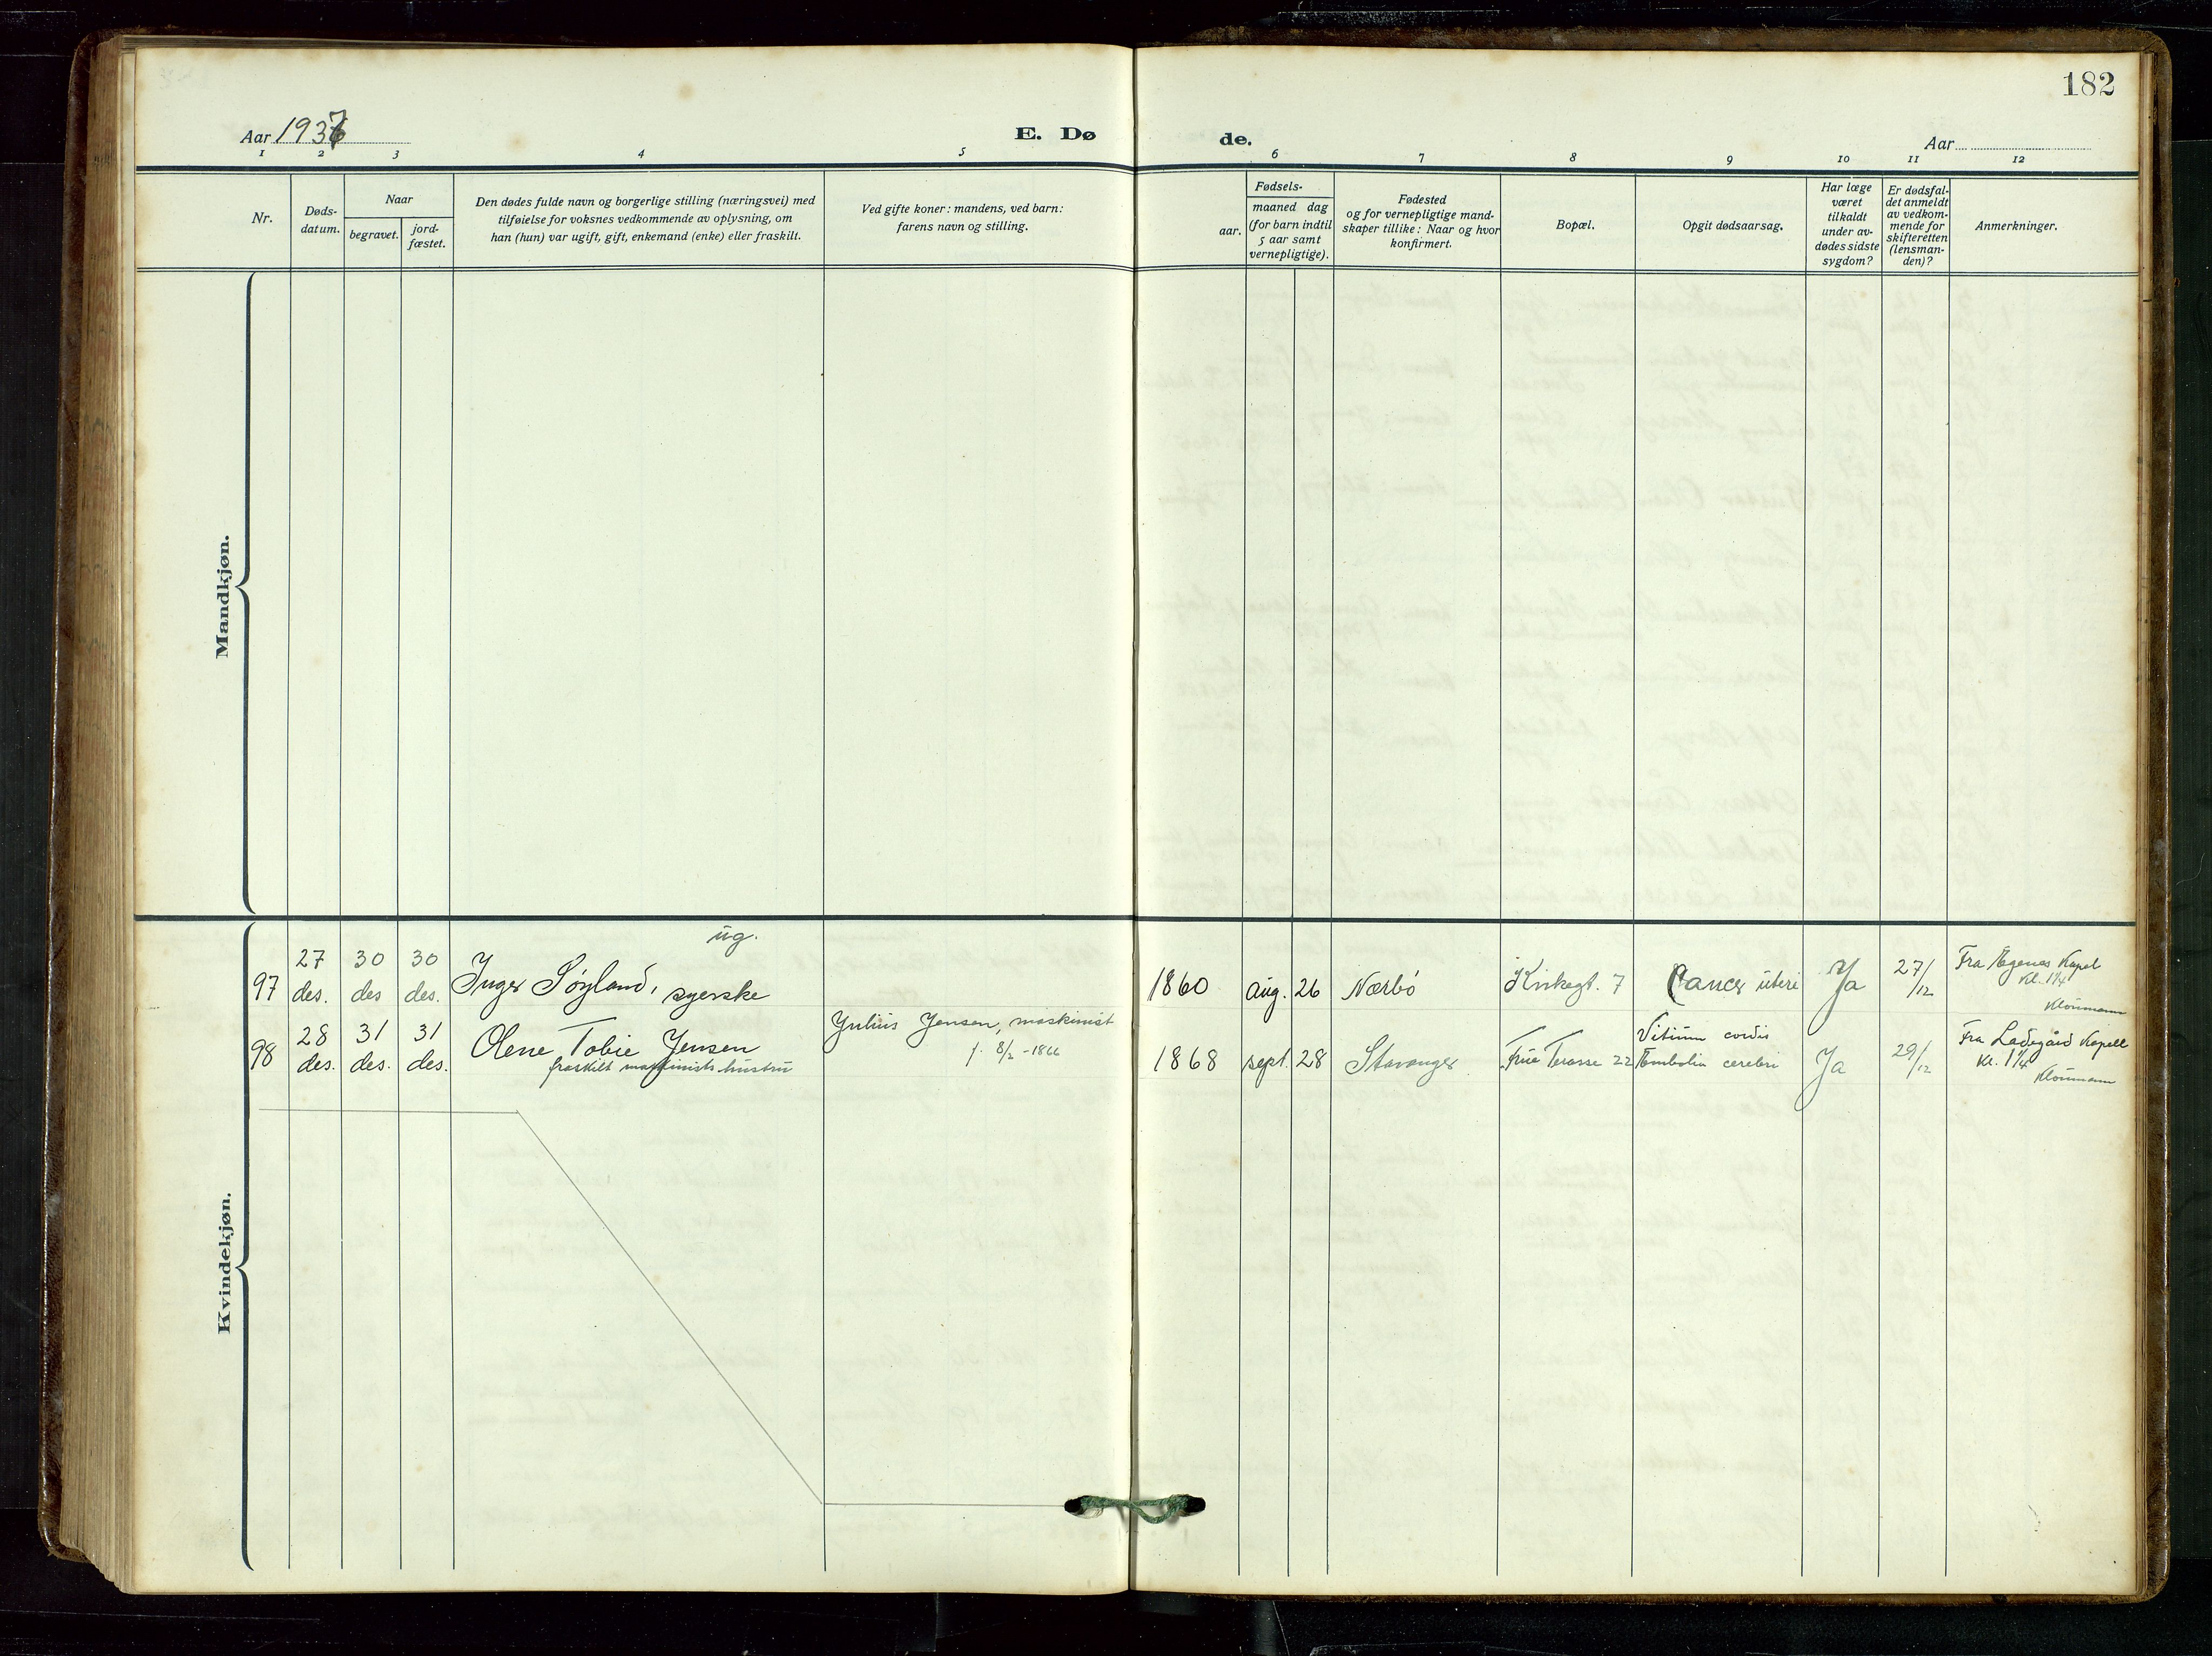 182
Aar 1936
E. Dø
de.
Aar
1 2 3 4 5 6 7 8 9 10 11 12
Nr.
Døds-
datum.
Naar
begravet.
jord-
fæstet.
Den dødes fulde navn og borgerlige stilling (næringsvei) med
tilføielse for voksnes vedkommende av oplysning, om
han (hun) var ugift, gift, enkemand (enke) eller fraskilt.
Ved gifte koner: mandens, ved barn:
farens navn og stilling.
Fødsels-
aar.
maaned dag
(for barn indtil
5 aar samt
vernepligtige).
Fødested
og for vernepligtige mand-
skaper tillike: Naar og hvor
konfirmert.
Bopæl.
Opgit dødsaarsag.
Har læge
været
tilkaldt
under av-
dødes sidste
sygdom?
Er dødsfal-
det anmeldt
av vedkom-
mende for
skifteretten
(lensman-
den)?
Anmerkninger.
Mandkjøn.
Kvindekjøn.
ug.
97 27 des. 30 des 30 des. Inger Søyland, syerske
1860 aug. 26 Nærbø Kirkegt. 7 Cancer uteri Ja 27/12
Fra Egenes Kapel
Kl. 1 1/4
Kloumann
98 28 des. 31 des. 31 des. Olene Tobie Jensen
fraskilt maskinists hustru
Julius Jensen, maskinist
f. 8/2 - 1866
1868 sept. 28 Stavanger Frue Terasse 22
Vitium cordis
Embolia cerebri
Ja 29/12
Fra Ladegård Kapell
Kl. 1 1/4
Kloumann